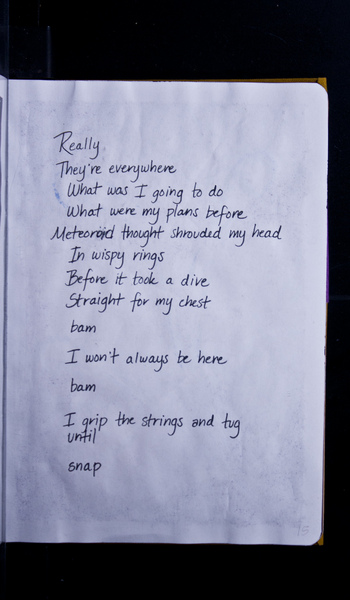 Really
They're everywhere
What was I going to do
What were my plans before
Meteoroid thought shrouded my head
In wispy rings
Before it took a dive
Straight for my chest
bam
I won't always be here
bam
I grip the strings and tug
until
snap